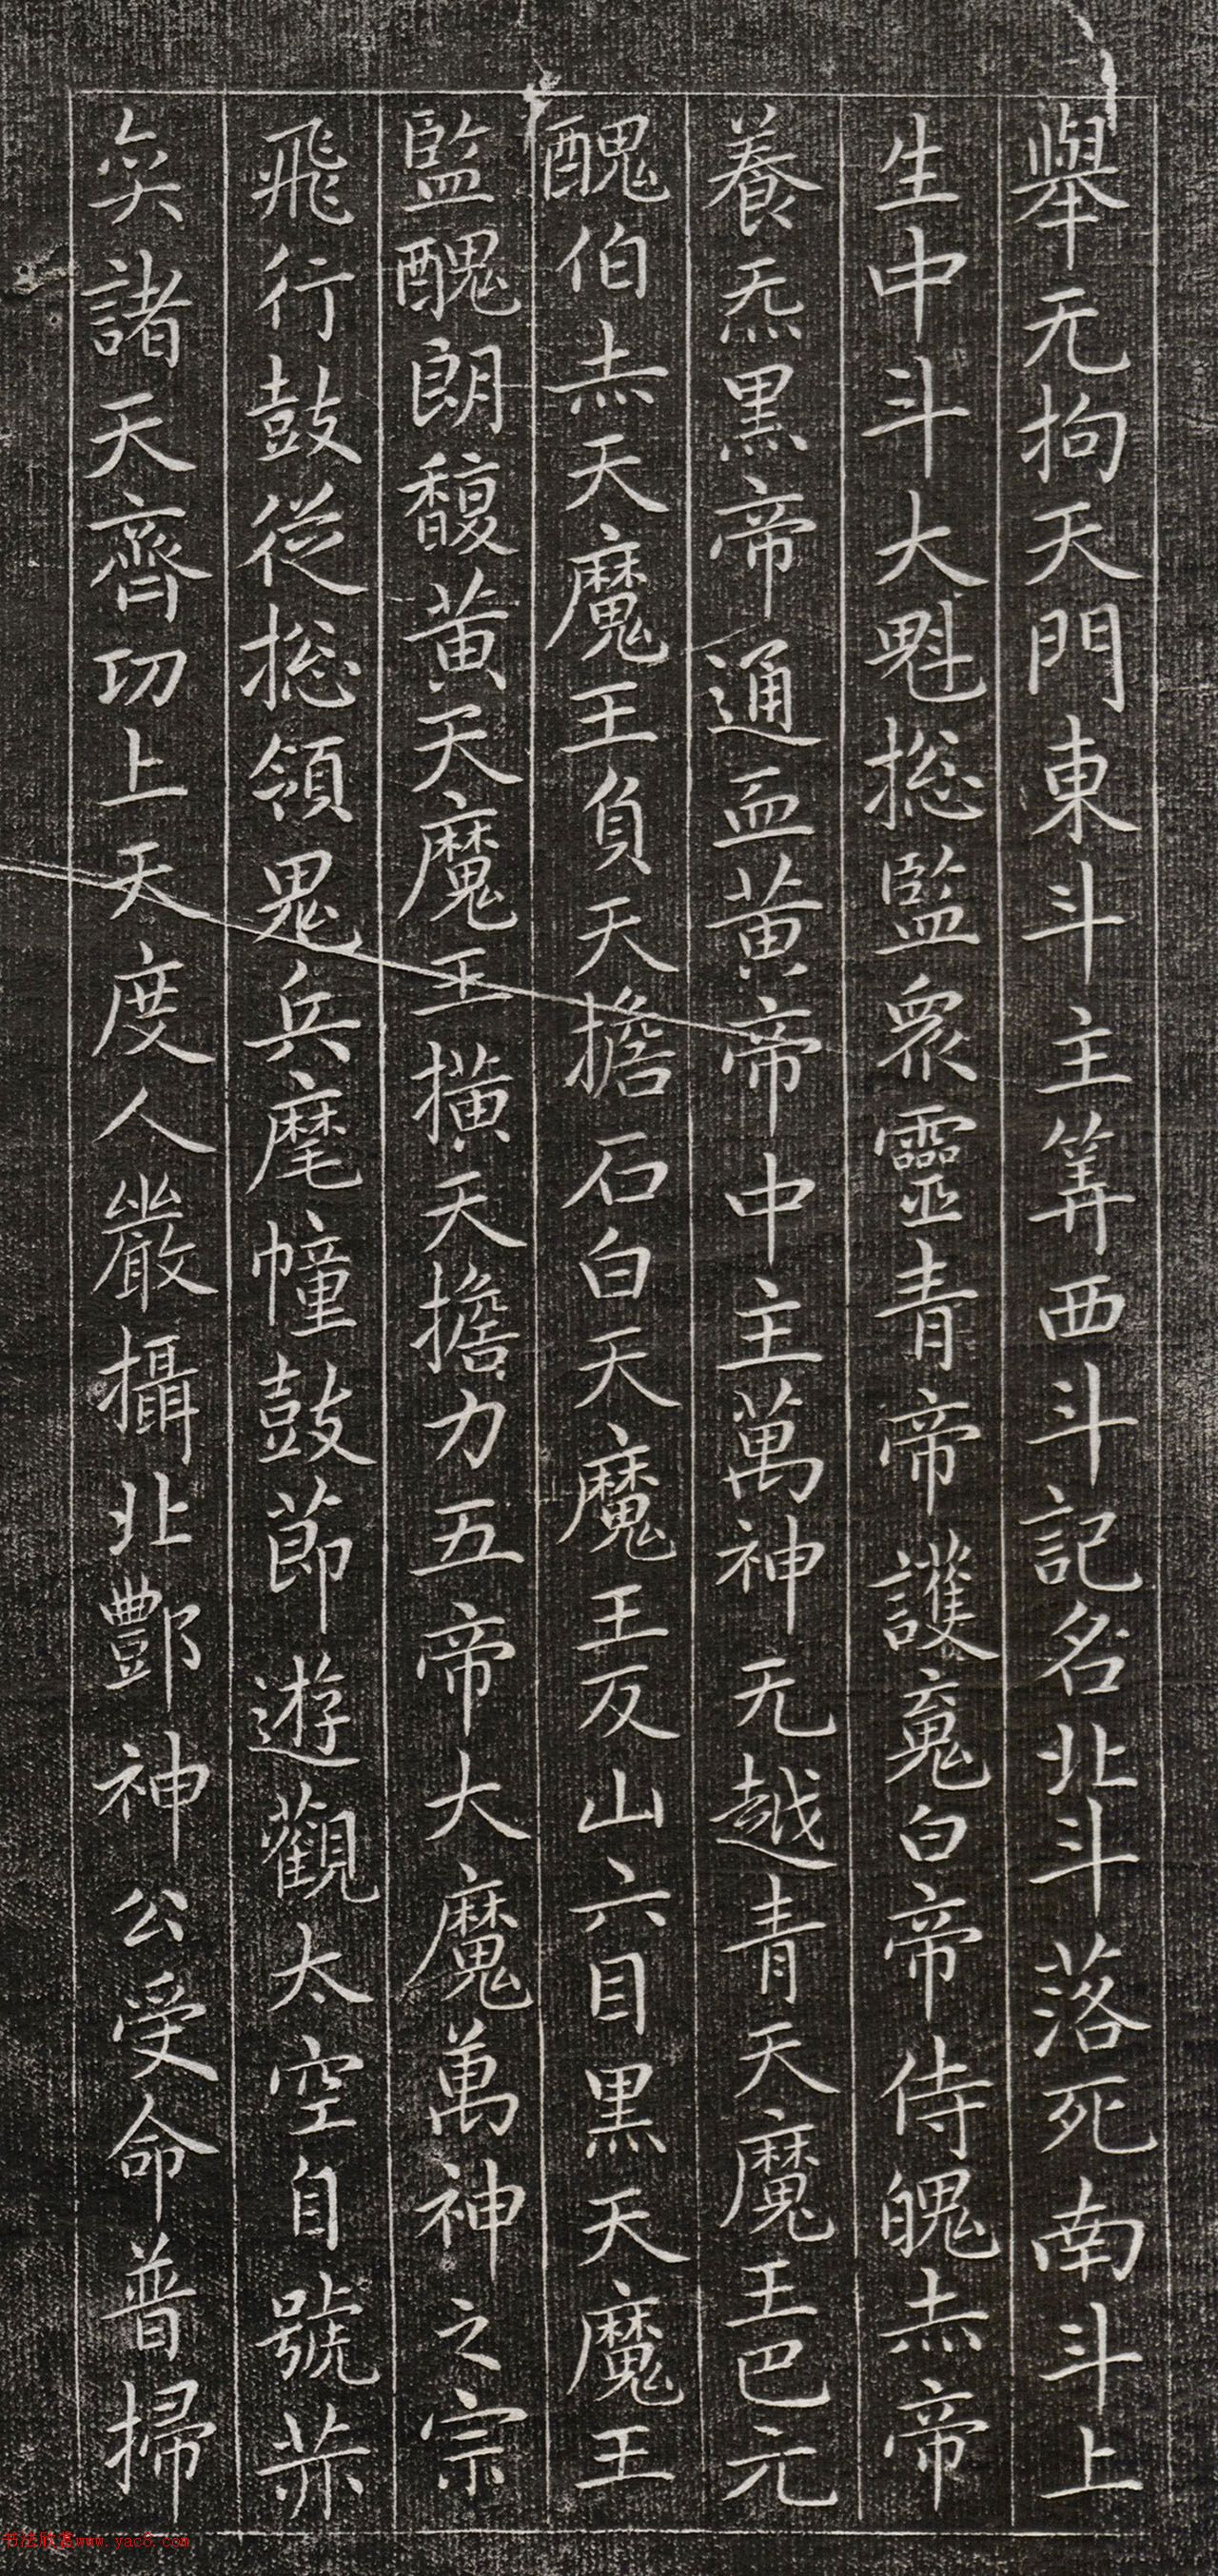 舉无拘天門東斗主筭西斗記名北斗落死南斗上
生中斗大魁捴監眾靈青帝護䰟白帝侍魄赤帝
養炁黑帝通血黄帝中主萬神无越青天魔王巴元
醜伯赤天魔王負天擔石白天魔王反山六目黒天魔王
監醜朗馥黄天魔王横天擔力五帝大魔萬神之宗
飛行鼓從捴領鬼兵麾幢鼓莭遊觀太空自號赤
矣諸天齊功上天度人嚴攝北酆神公受命普掃
书法欣赏www.yac8.com